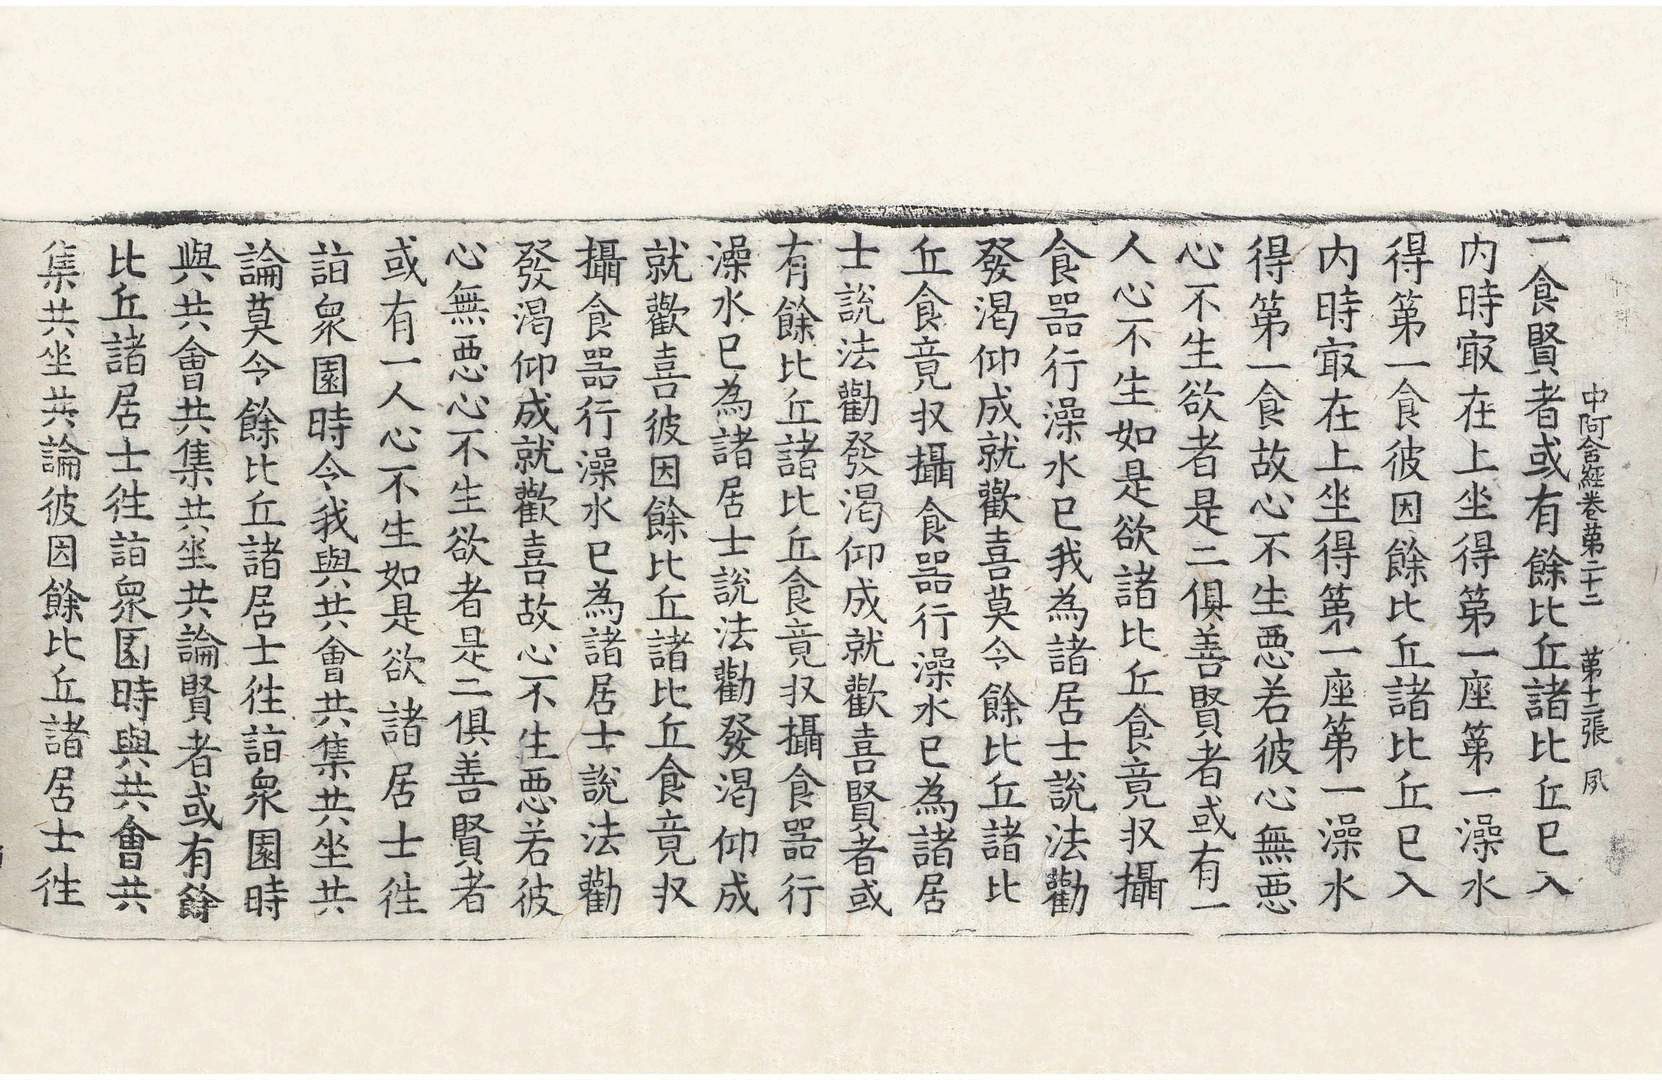 中阿含經卷第二十二 第十二張 夙
一食賢者或有餘比丘諸比丘已入
内時㝡在上坐得第一座第一澡水
得第一食彼因餘比丘諸比丘已入
内時㝡在上坐得第一座第一澡水
得第一食故心不生惡若彼心無惡
心不生欲者是二俱善賢者或有一
人心不生如是欲諸比丘食竟収攝
食器行澡水已我為諸居士說法勸
發渴仰成就歡喜莫令餘比丘諸比
丘食竟収攝食器行澡水已為諸居
士說法勸發渴仰成就歡喜賢者或
有餘比丘諸比丘食竟収攝食器行
澡水已為諸居士說法勸發渴仰成
就歡喜彼因餘比丘諸比丘食竟収
攝食器行澡水已為諸居士說法勸
發渴仰成就歡喜故心不生惡若彼
心無惡心不生欲者是二俱善賢者
或有一人心不生如是欲諸居士徃
詣衆園時令我與共會共集共坐共
論莫令餘比丘諸居士徃詣衆園時
與共會共集共坐共論賢者或有餘
比丘諸居士徃詣衆園時與共會共
集共坐共論彼因餘比丘諸居士徃